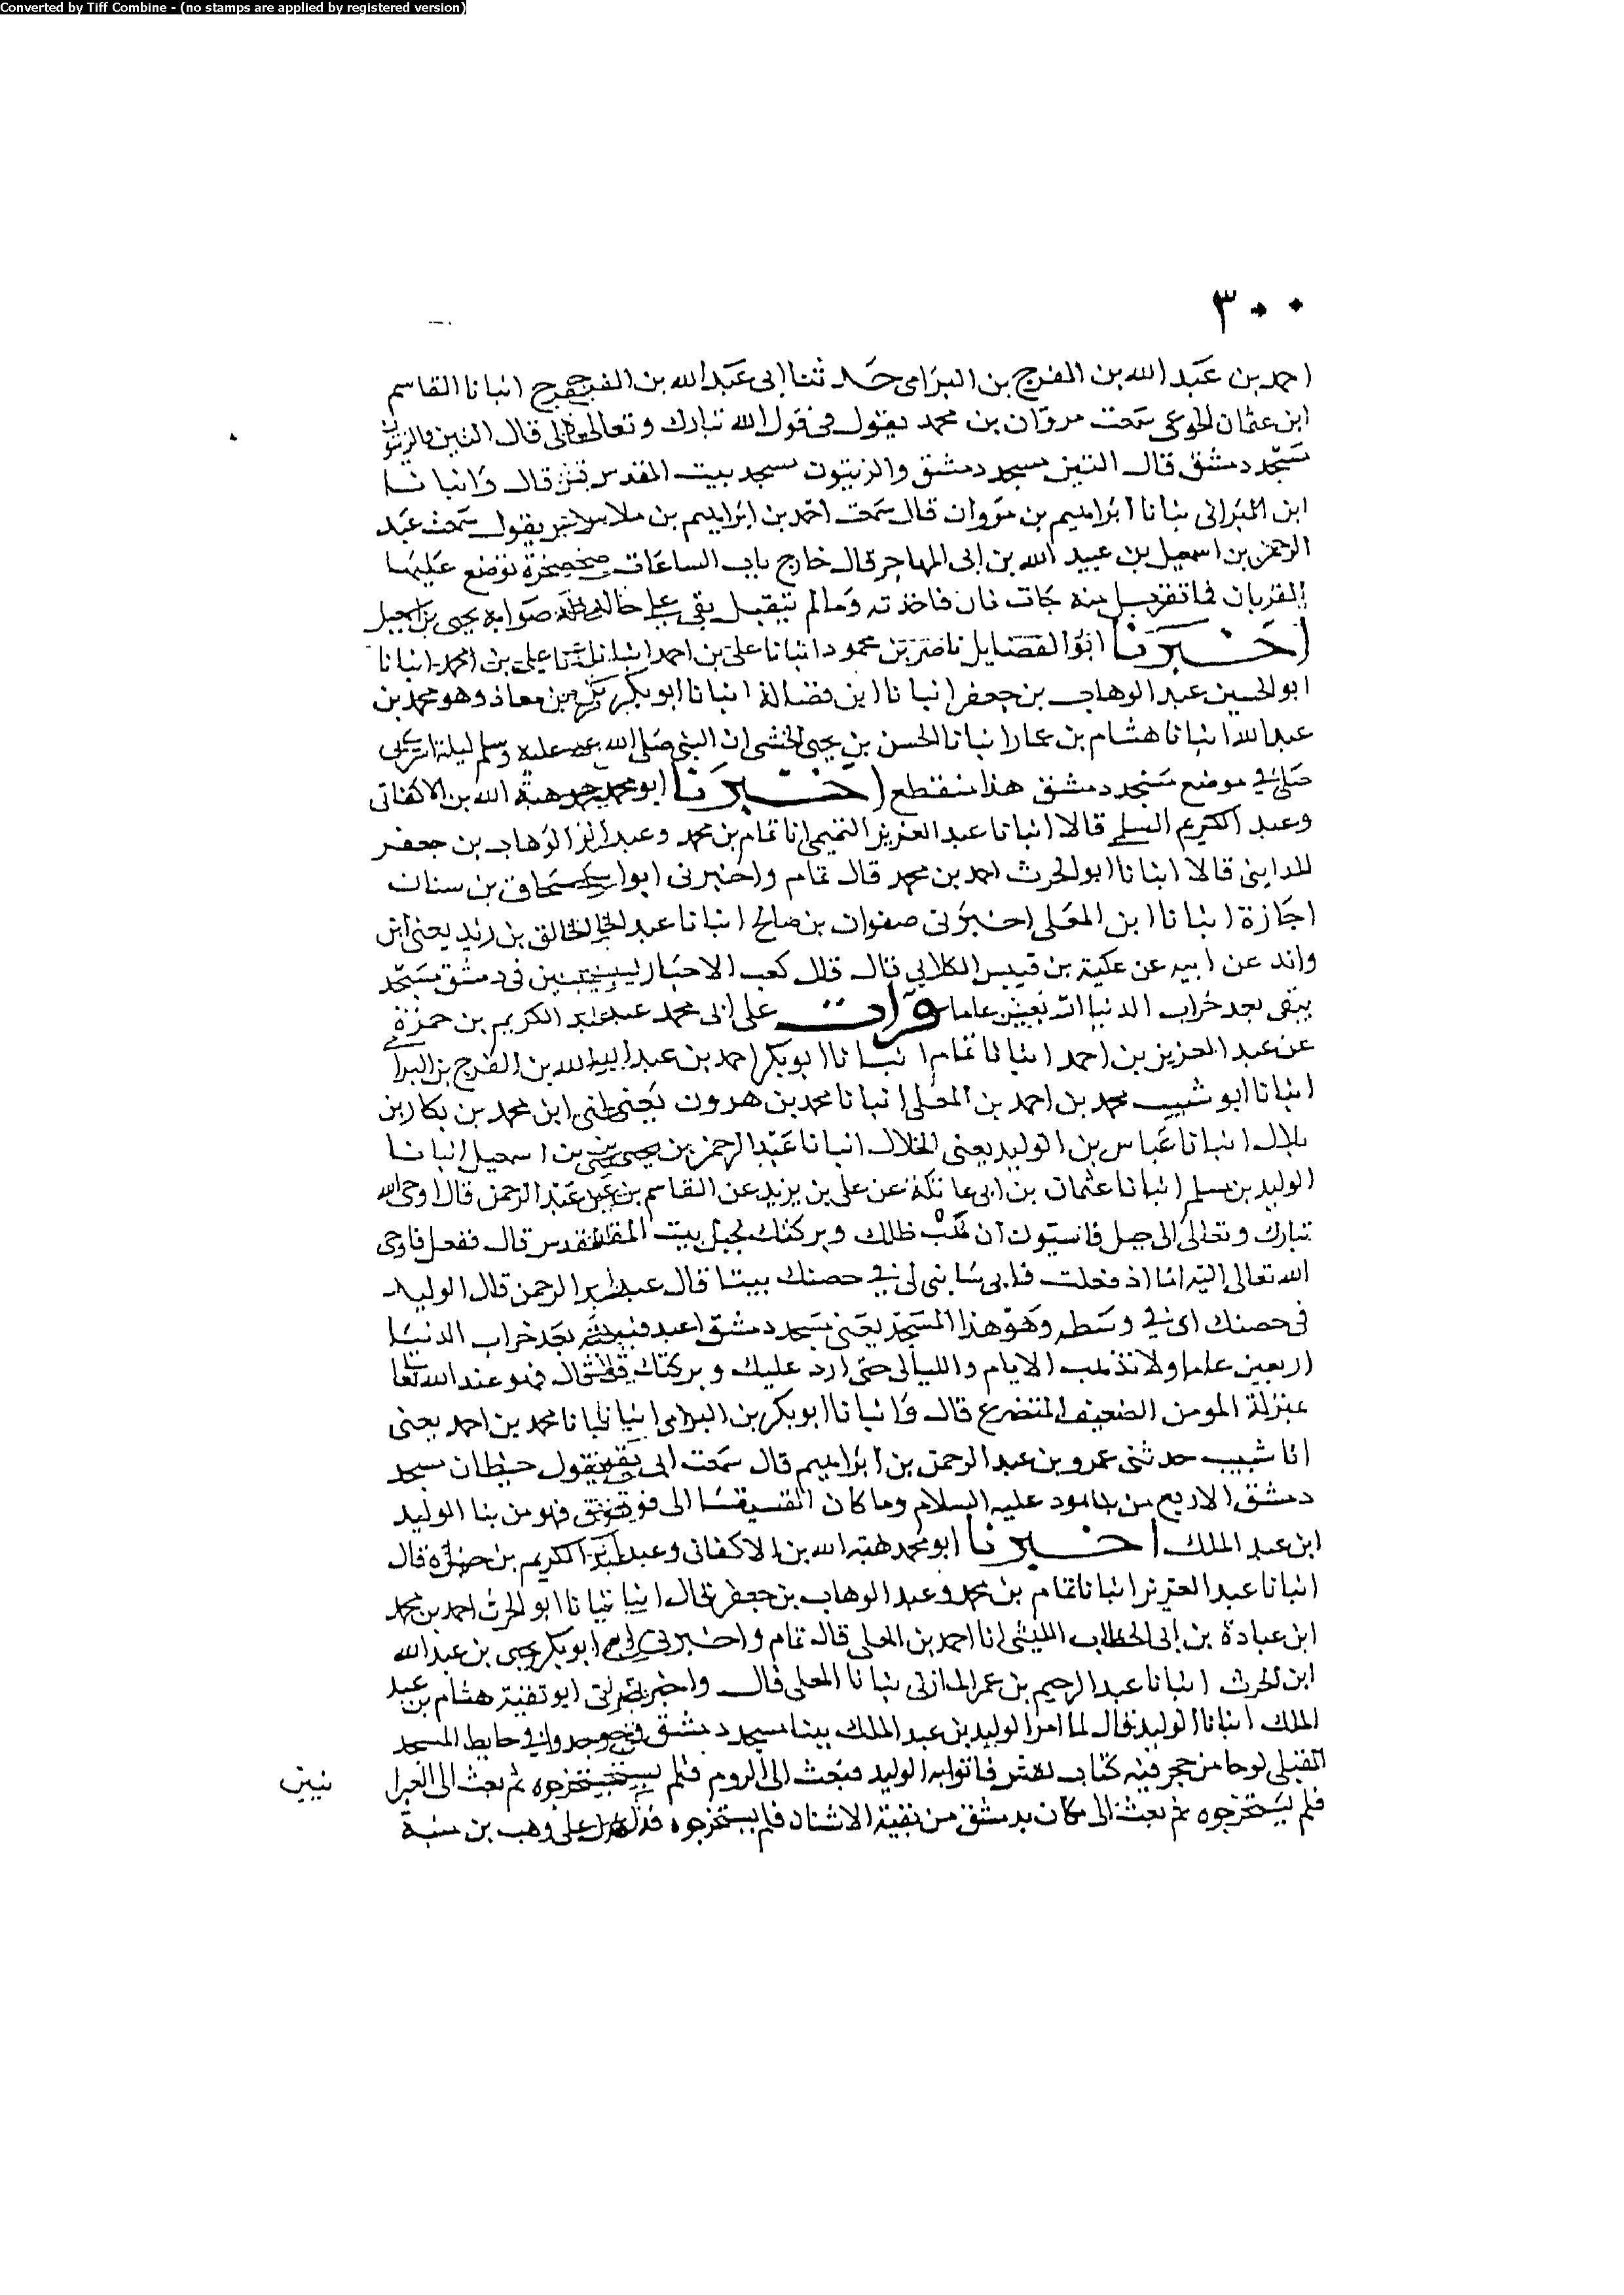 Converted by Tiff Combine - (no stamps are applied by registered version)
٣٠٠
احمد بن عبد الله بن الفرج بن البرامى حدثنا ابى عبد الله بن الفرج انبانا القاسم
ابن عثمان الجوعى سمعت مروان بن محمد يقول فى قول الله تبارك وتعالى قال التين والزيتون
مسجد دمشق قال التين مسجد دمشق والزيتون مسجد بيت المقدس قال وانبانا
ابن البرامى نبانا ابراهيم بن مروان قال سمعت احمد بن ابراهيم بن ملاس يقول سمعت عبد
الرحمن بن اسمعيل بن عبيد الله بن ابى المهاجر قال خارج باب الساعات صخرة توضع عليها
القربان فما تقبل منه جات نار فاخذته وما لم يتقبل بقى على حاله صوابه يحيى بن اسمعيل
اخبرنا ابو الفضايل ناصر بن محمود انبانا على بن احمد انبانا على بن محمد انبانا
ابو الحسين عبد الوهاب بن جعفر انبانا ابن فضالة انبانا ابو بكر بن معاذ وهو محمد بن
عبد الله انبانا هشام بن عمار انبانا الحسن بن يحيى الخشنى ان النبى صلى الله عليه وسلم ليلة اسرى به
صلى فى موضع مسجد دمشق هذا منقطع اخبرنا ابو محمد هبة الله بن الاكفانى
وعبد الكريم السلمى قالا انبانا عبد العزيز التميمى انا تمام بن محمد وعبد الوهاب بن جعفر
المداينى قالا انبانا ابو الحرث احمد بن محمد قال تمام واخبرنى ابو اسحاق بن سنان
اجازة انبانا ابن المعلى اخبرنى صفوان بن صالح انبانا عبد الخالق بن زيد يعنى ابن
واقد عن ابيه عن عطية بن قيس الكلابى قال قال كعب الاحبار ليبنين فى دمشق مسجد
يبقى بعد خراب الدنيا اربعين عاما قرات على ابى محمد عبد الكريم بن حمزة
عن عبد العزيز بن احمد انبانا تمام انبانا ابو بكر احمد بن عبد الله بن الفرج بن البرامى
انبانا ابو شبيب محمد بن احمد بن المعلى انبانا محمد بن هرون يعنى ابن محمد بن بكار بن
بلال انبانا عباس بن الوليد يعنى الخلال انبانا عبد الرحمن بن يحيى بن اسمعيل انبانا
الوليد بن مسلم انبانا عثمان بن ابى عاتكة عن على بن يزيد عن القاسم بن عبد الرحمن قال اوحى الله
تبارك وتعالى الى جبل قاسيون ان هب ظلك وبركتك لجبل بيت المقدس قال ففعل فاوحى
الله تعالى اليه اما اذ فعلت فانى سابنى لى فى حصنك بيتا قال عبد الرحمن قال الوليد
فى حصنك اى فى وسطه وهو هذا المسجد يعنى مسجد دمشق اعبد فيه بعد خراب الدنيا
اربعين عاما ولا تذهب الايام والليالى حتى ارد عليك وبركتك قال فهو عند الله تعالى
بمنزلة المومن الضعيف المتضرع قال وانبانا ابو بكر بن البرامى انبانا محمد بن احمد يعنى
انا شبيب حدثنى عمرو بن عبد الرحمن بن ابراهيم قال سمعت ابى يقول حيطان مسجد
دمشق الاربع من بنا هود عليه السلام وما كان الفسيفسا الى فوق فهو من بنا الوليد
ابن عبد الملك اخبرنا ابو محمد هبة الله بن الاكفانى وعبد الكريم بن حمزة قال
انبانا عبد العزيز انبانا تمام بن محمد وعبد الوهاب بن جعفر قال انبانا ابو الحرث احمد بن محمد
ابن عبادة بن ابى الخطاب الليثى انا احمد بن المعلى قال تمام واخبرنى ابو بكر يحيى بن عبد الله
ابن الحرث انبانا عبد الرحيم بن عمر المازنى نبانا المعلى قال واخبرنى ابو تقية هشام بن عبد
الملك انبانا الوليد قال لما امر الوليد بن عبد الملك ببنا مسجد دمشق وجدوا فى حايط المسجد
القبلى لوحا من حجر فيه كتاب نقش فاتوا به الوليد فبعث الى الروم فلم يستخرجوه ثم بعث الى العبرا
نيين
فلم يستخرجوه ثم بعث الى من كان بدمشق من بقية الاشبان فلم يستخرجوه فدل على وهب بن منبة